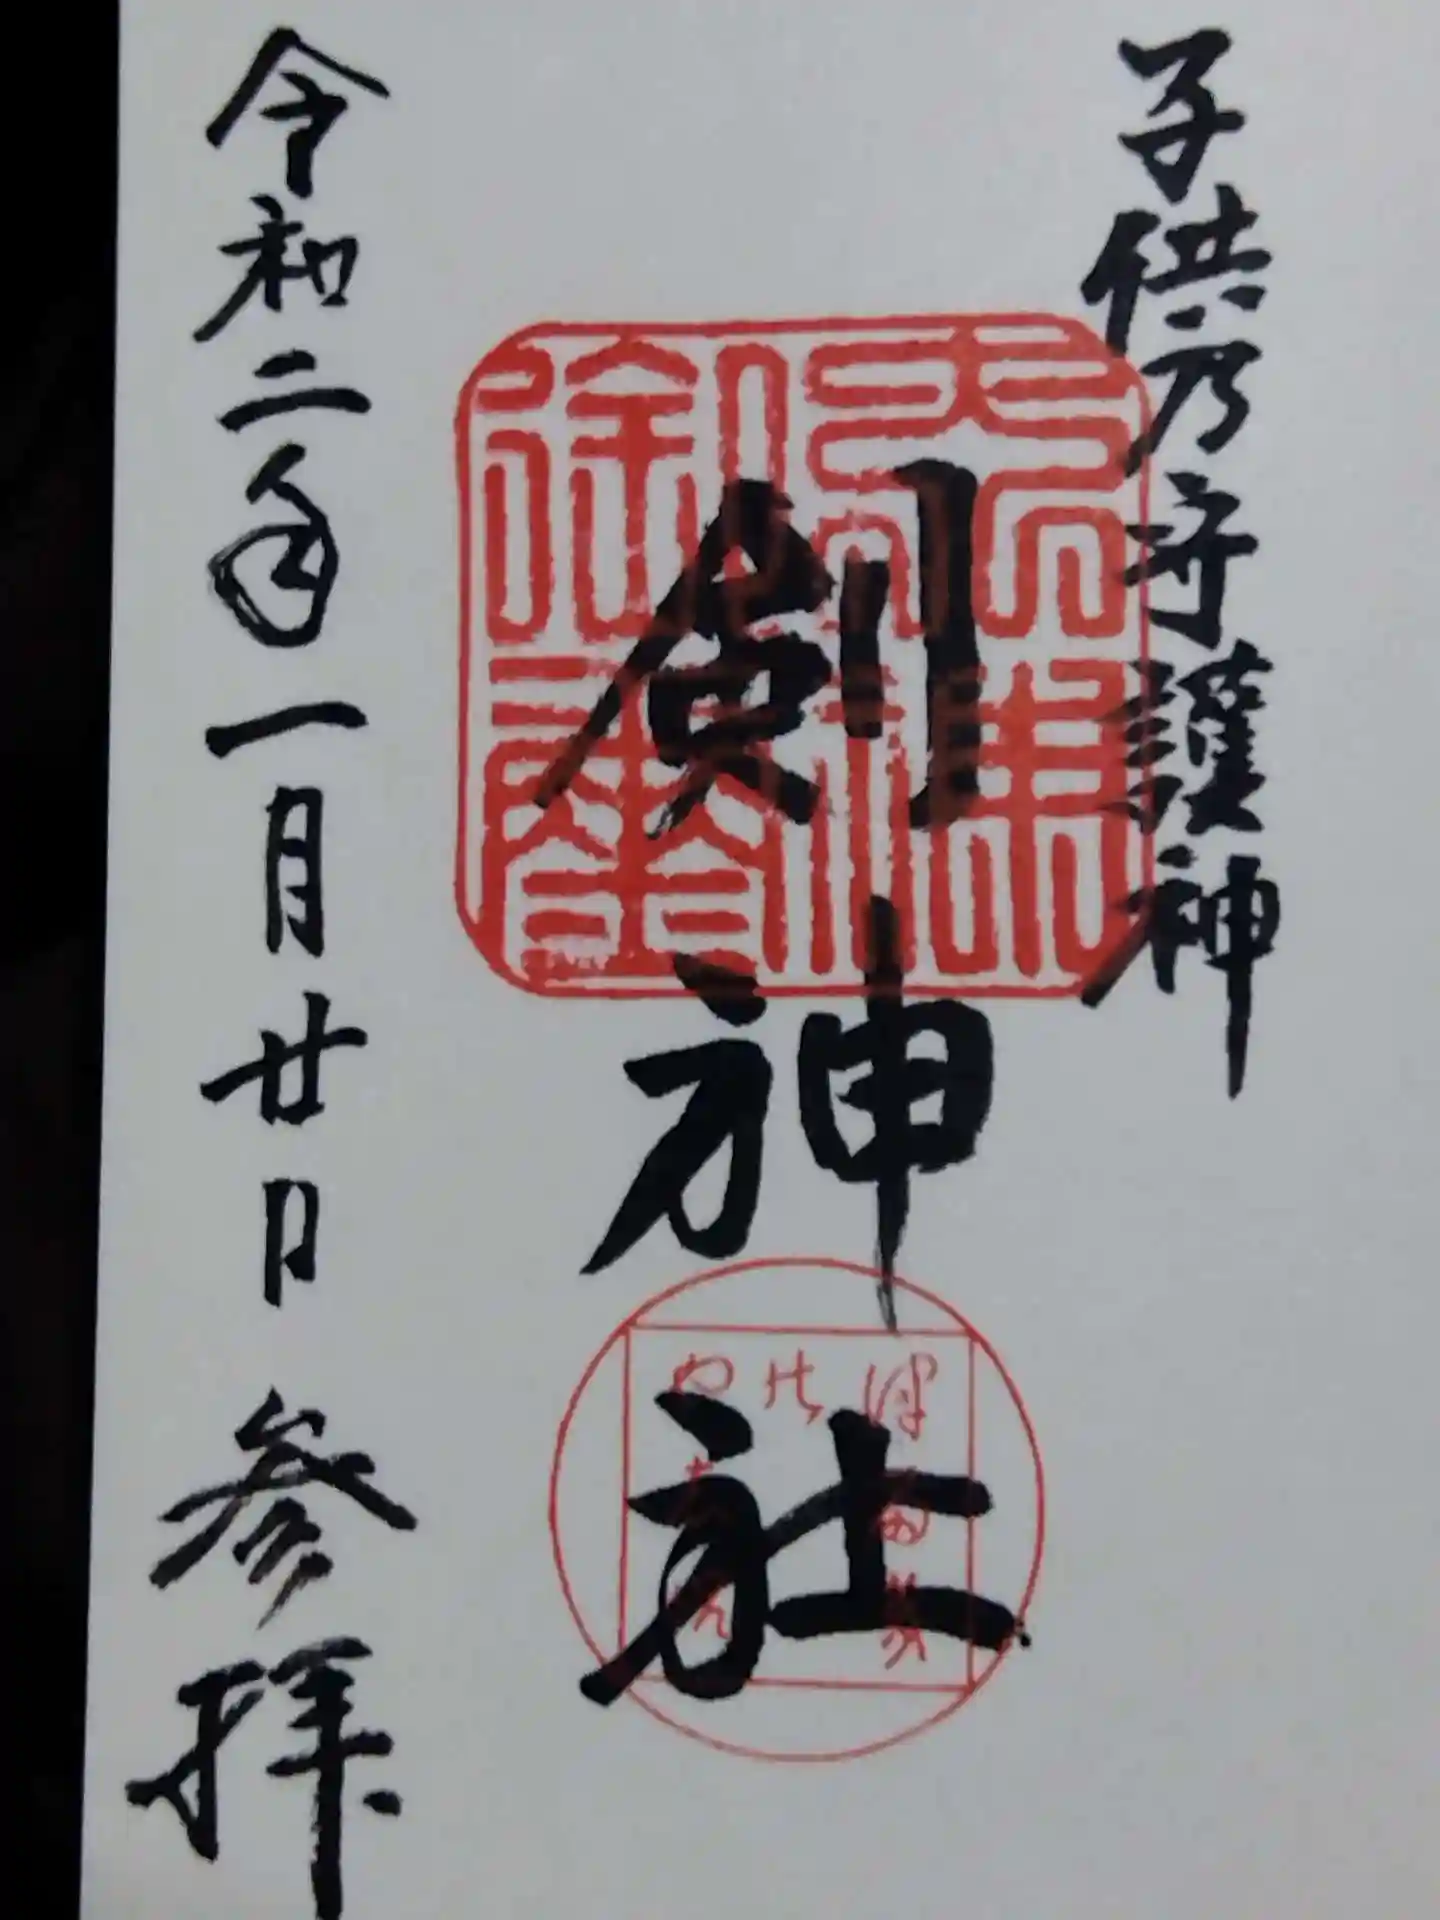 子供乃守護神
剣神社
令和二年一月廿日
参拝